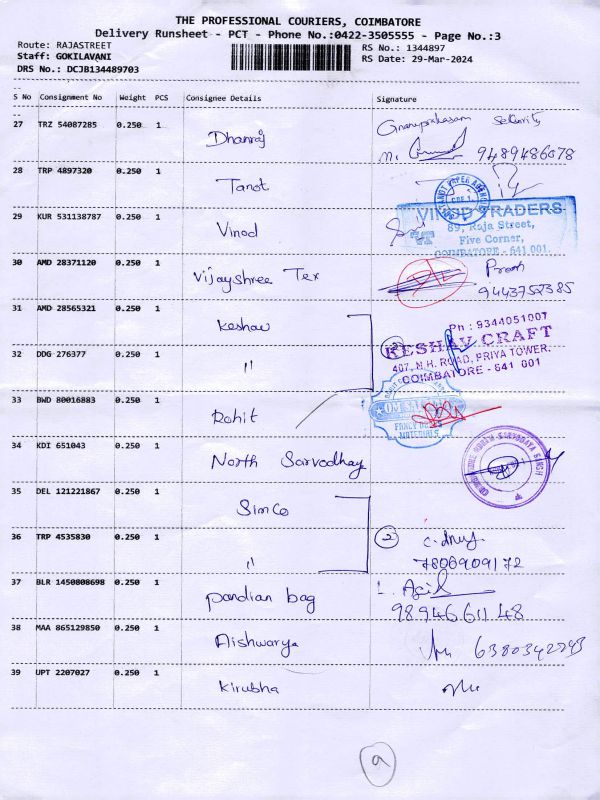 THE PROFESSIONAL COURIERS, COIMBATORE
Delivery Runsheet - PCT - Phone No.:0422-3505555 - Page No.:3
Route: RAJASTREET RS No.: 1344897
Staff: GOKILAVANI RS Date: 29-Mar-2024
DRS No.: DCJB134489703
--
S No Consignment No Weight PCS Consignee Details Signature
--
27 TRZ 54087285 0.250 1 Dhanraj Gnanaprakasam Security
9489486078
28 TRP 4897320 0.250 1 Tanot
29 KUR 531138787 0.250 1 Vinod VINOD TRADERS
89, Raja Street,
Five Corner,
COIMBATORE - 641 001.
30 AMD 28371120 0.250 1 Vijayshree Tex
9443752385
31 AMD 28565321 0.250 1 Keshav Ph : 9344051007
KESHAV CRAFT
32 DDG 276377 0.250 1 " 407, N.H. ROAD, PRIYA TOWER.
COIMBATORE - 641 001
33 BWD 80016883 0.250 1 Rohit
FANCY
MATERIALS
34 KDI 651043 0.250 1 North Sarvodhay
35 DEL 121221867 0.250 1 Simco
36 TRP 4535830 0.250 1 " 2
7806909172
37 BLR 1450808698 0.250 1 pandian bag
98946 61148
38 MAA 865129850 0.250 1 Aishwarya 6380342743
39 UPT 2207027 0.250 1 Kirubha
a